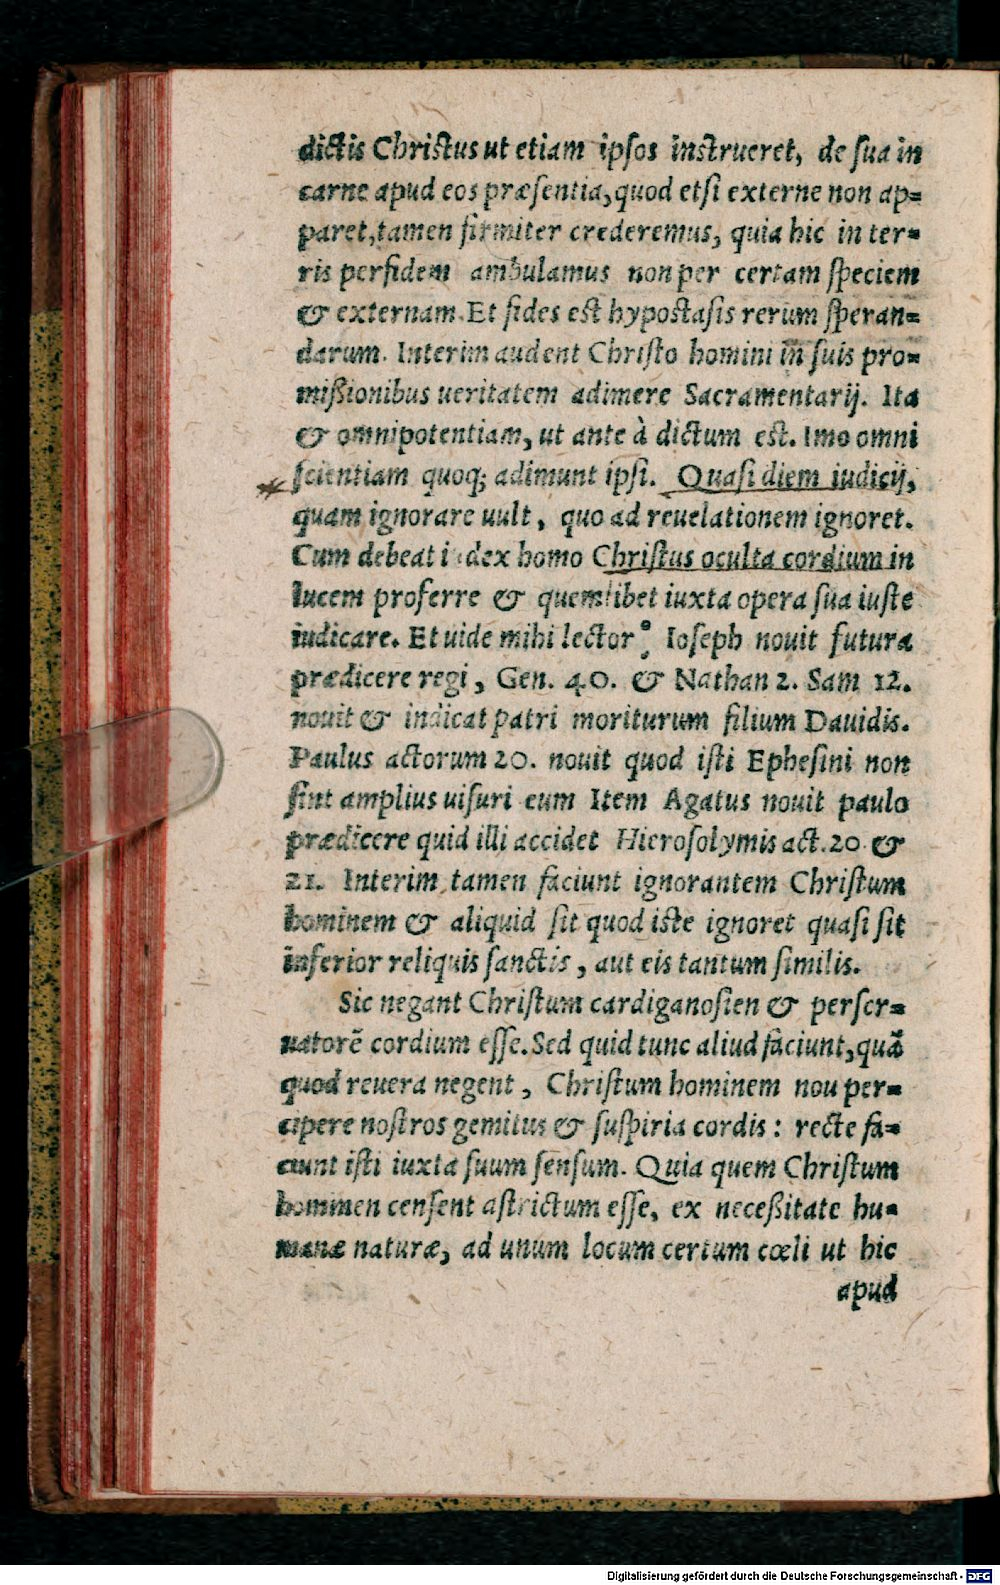 dictis Christus ut etiam ipsos instrueret, de sua in
carne apud eos præsentia, quod etsi externe non ap=
paret, tamen firmiter crederemus, quia hic in ter=
ris per fidem ambulamus non per certam speciem
& externam. Et fides est hypostasis rerum speran=
darum. Interim audent Christo homini in suis pro=
mißionibus ueritatem adimere Sacramentarij. Ita
& omnipotentiam, ut ante à dictum est. Imo omni
scientiam quoq; adimunt ipsi. Quasi diem iudicij,
quam ignorare uult, quo ad reuelationem ignoret.
Cum debeat iudex homo Christus oculta cordium in
lucem proferre & quemlibet iuxta opera sua iuste
iudicare. Et uide mihi lector: Ioseph nouit futura
prædicere regi, Gen. 40. & Nathan 2. Sam 12.
nouit & indicat patri moriturum filium Dauidis.
Paulus actorum 20. nouit quod isti Ephesini non
sint amplius uisuri eum Item Agatus nouit paulo
prædicere quid illi accidet Hierosolymis act. 20 &
21. Interim tamen faciunt ignorantem Christum
hominem & aliquid sit quod iste ignoret quasi sit
inferior reliquis sanctis, aut eis tantum similis.
Sic negant Christum cardiganosien & perscr=
uatorē cordium esse. Sed quid tunc aliud faciunt, quā
quod reuera negent, Christum hominem nou per=
cipere nostros gemitus & suspiria cordis: recte fa=
ciunt isti iuxta suum sensum. Quia quem Christum
hominen censent astrictum esse, ex neceßitate hu=
manæ naturæ, ad unum locum certum cœli ut hic
apud
Digitalisierung gefördert durch die Deutsche Forschungsgemeinschaft - DFG